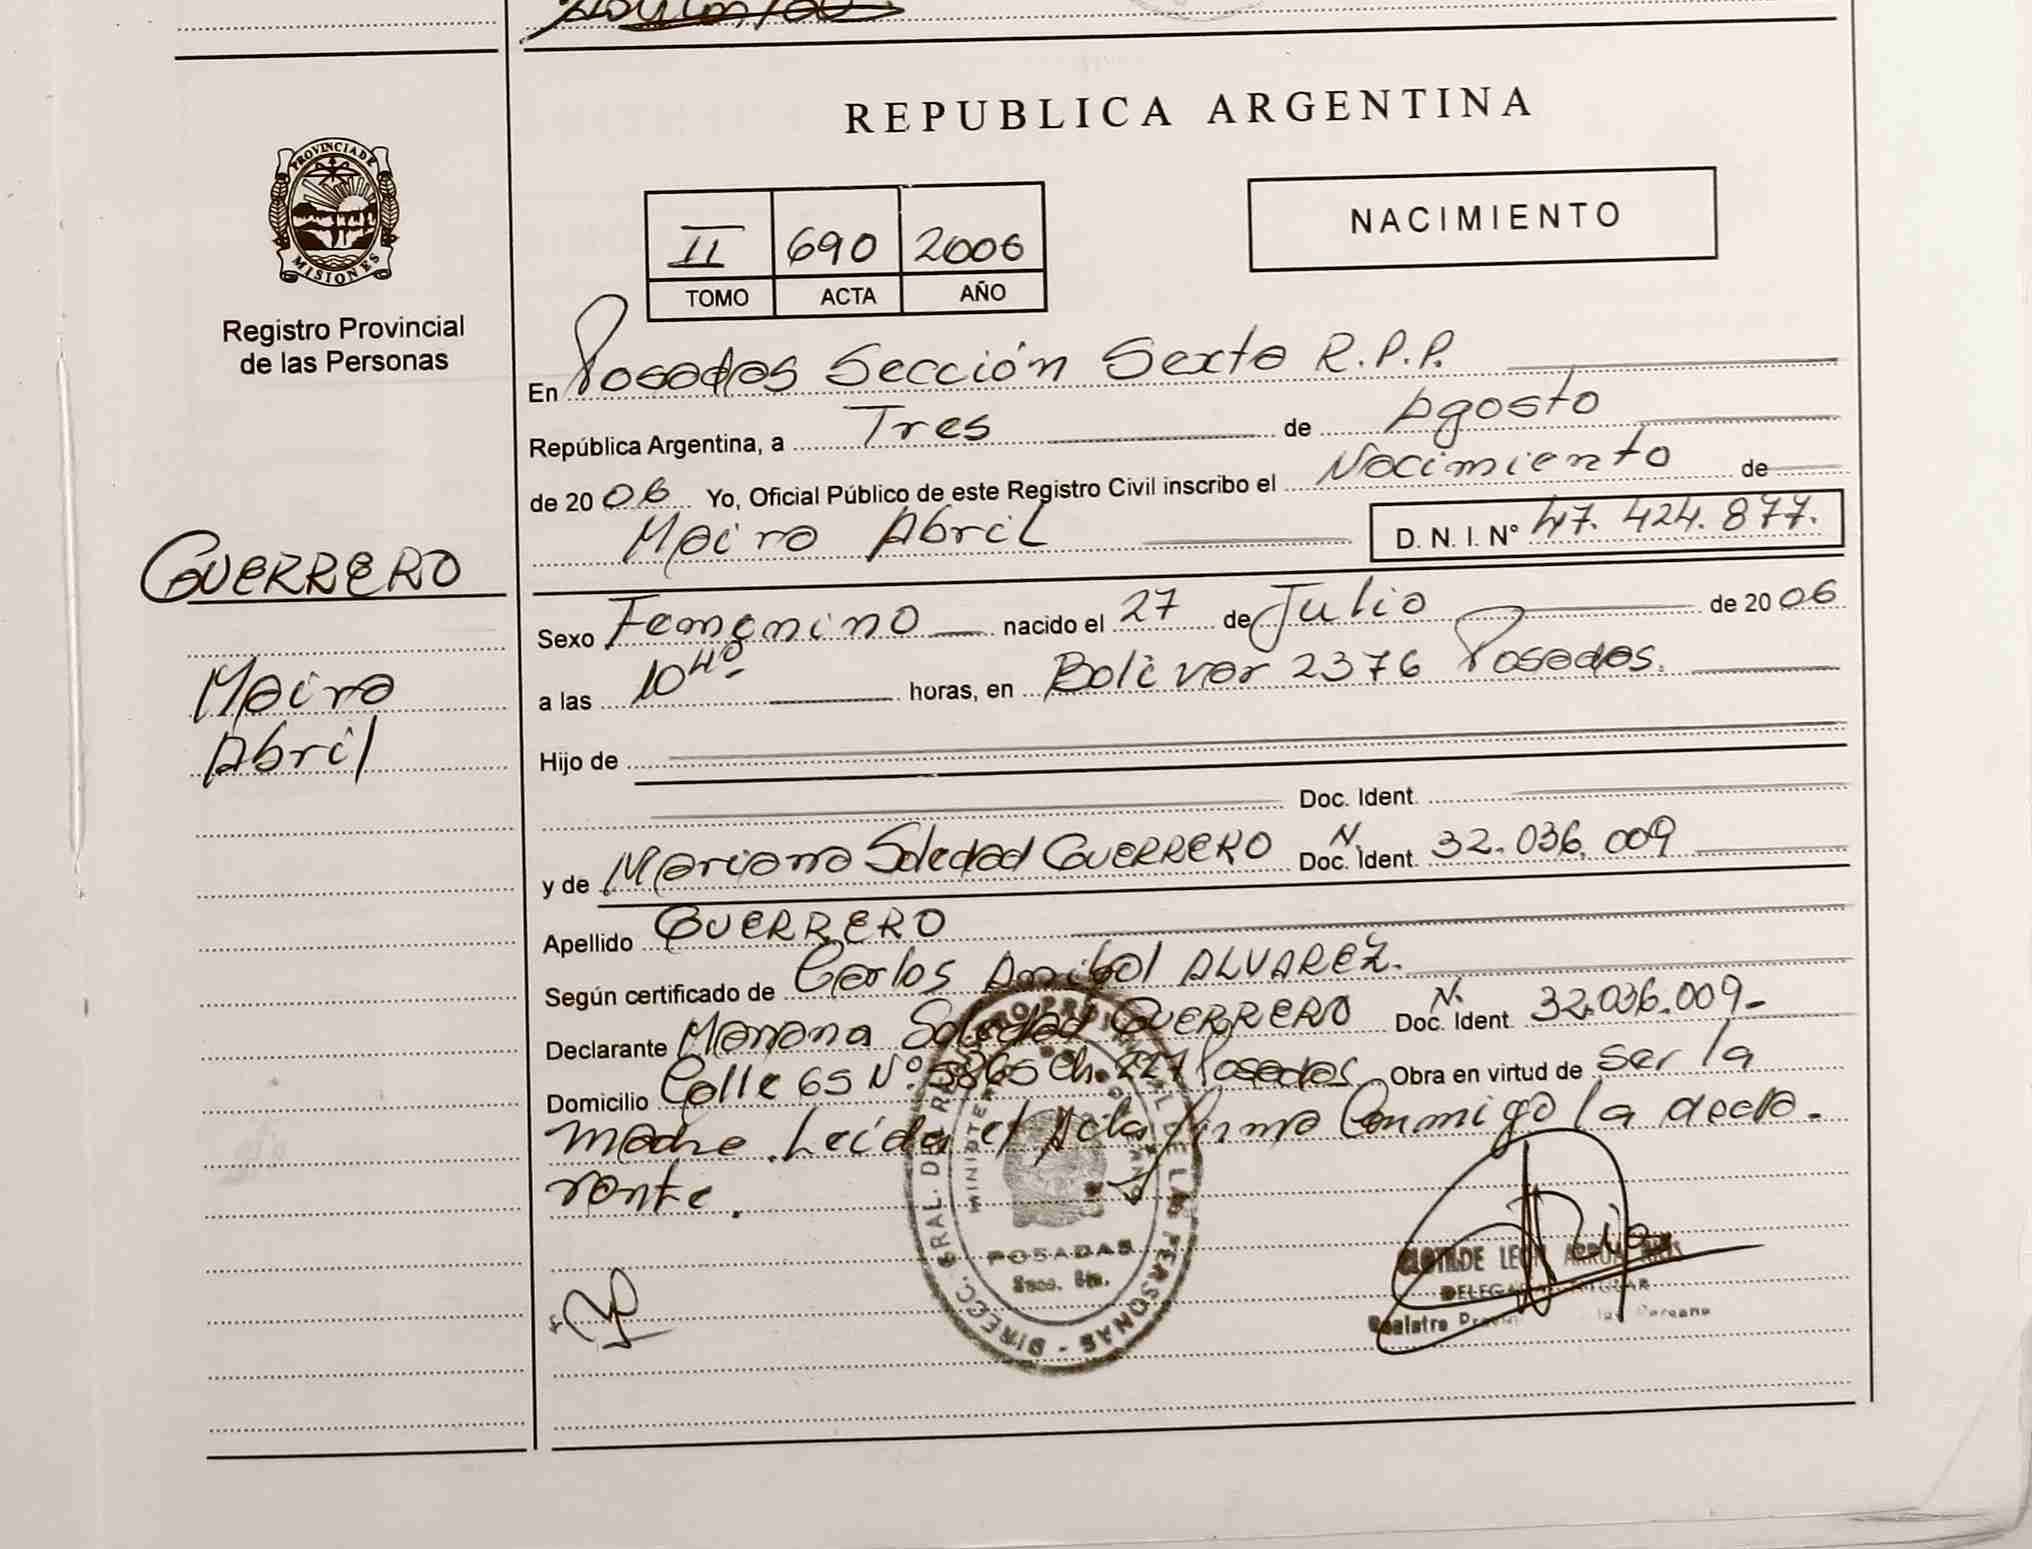 REPUBLICA ARGENTINA
PROVINCIA DE
MISIONES
Registro Provincial
de las Personas
II 690 2006
TOMO ACTA AÑO
NACIMIENTO
En Posadas Sección Sexta R.P.P.
República Argentina, a Tres de Agosto
de 20 06 Yo, Oficial Público de este Registro Civil inscribo el Nacimiento de
Maira Abril D. N. I. N° 47.424.877.
GUERRERO
Maira
Abril
Sexo Femenino nacido el 27 de Julio de 20 06
a las 10 40 horas, en Bolivar 2376 Posadas.
Hijo de
Doc. Ident.
y de Mariana Soledad GUERRERO Doc. Ident. N. 32.036.009
Apellido GUERRERO
Según certificado de Carlos Anibal ALVAREZ.
Declarante Mariana Soledad GUERRERO Doc. Ident. N. 32.036.009-
Domicilio Calle 65 N° 5865 Ch. 227 Posadas Obra en virtud de ser la
madre. Leída el Acta firma Conmigo la decla-
rante.
POSADAS
Secc. 6ta.
CLOTILDE LEON ARRUA